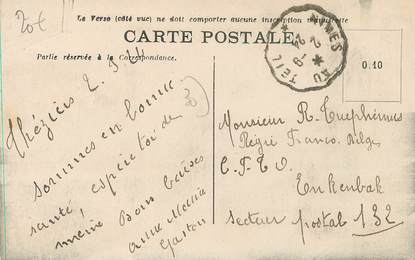 20€
Le Verso (côté vue) ne doit comporter aucune inscription
CARTE POSTALE
Partie réservée à la Correspondance.
NIMES AU TEIL
0.10
Théziers 2. 3. 24
Sommes en bonne
santé espère toi de
même Bons baisers
Gaston
Monsieur R.
Régie Franco. Belge
C. F. T. O.
Enkenbak
secteur postal 132